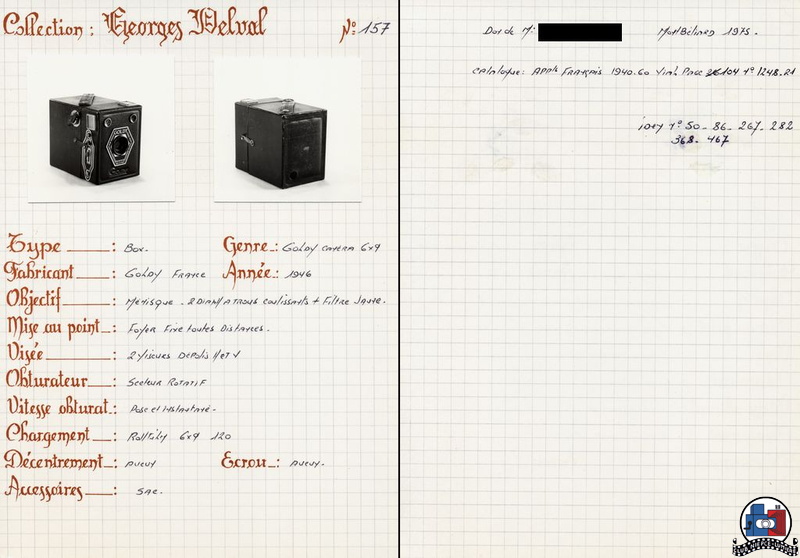 Collection : Georges Delval
N°: 157
Type : Box.
Genre : Goldy camera 6x9
Fabricant : Goldy France
Année : 1946
Objectif : Ménisque - 2 DiamA trous coulissants + Filtre Jaune.
Mise au point : Foyer Fixe toutes Distances.
Visée : 2 Viseurs Dépolis H et V
Obturateur : Secteur Rotatif
Vitesse obturat. : Pose et instantané -
Chargement : Rollfilm 6x9 120
Décentrement : Aucun
Ecrou : Aucun.
Accessoires : Sac.
Don de Mr
Montbéliard 1975.
Catalogue: App Français 1940.60 104 N° 1248.21
idem N° 50 - 86 - 267 - 282
368 - 467